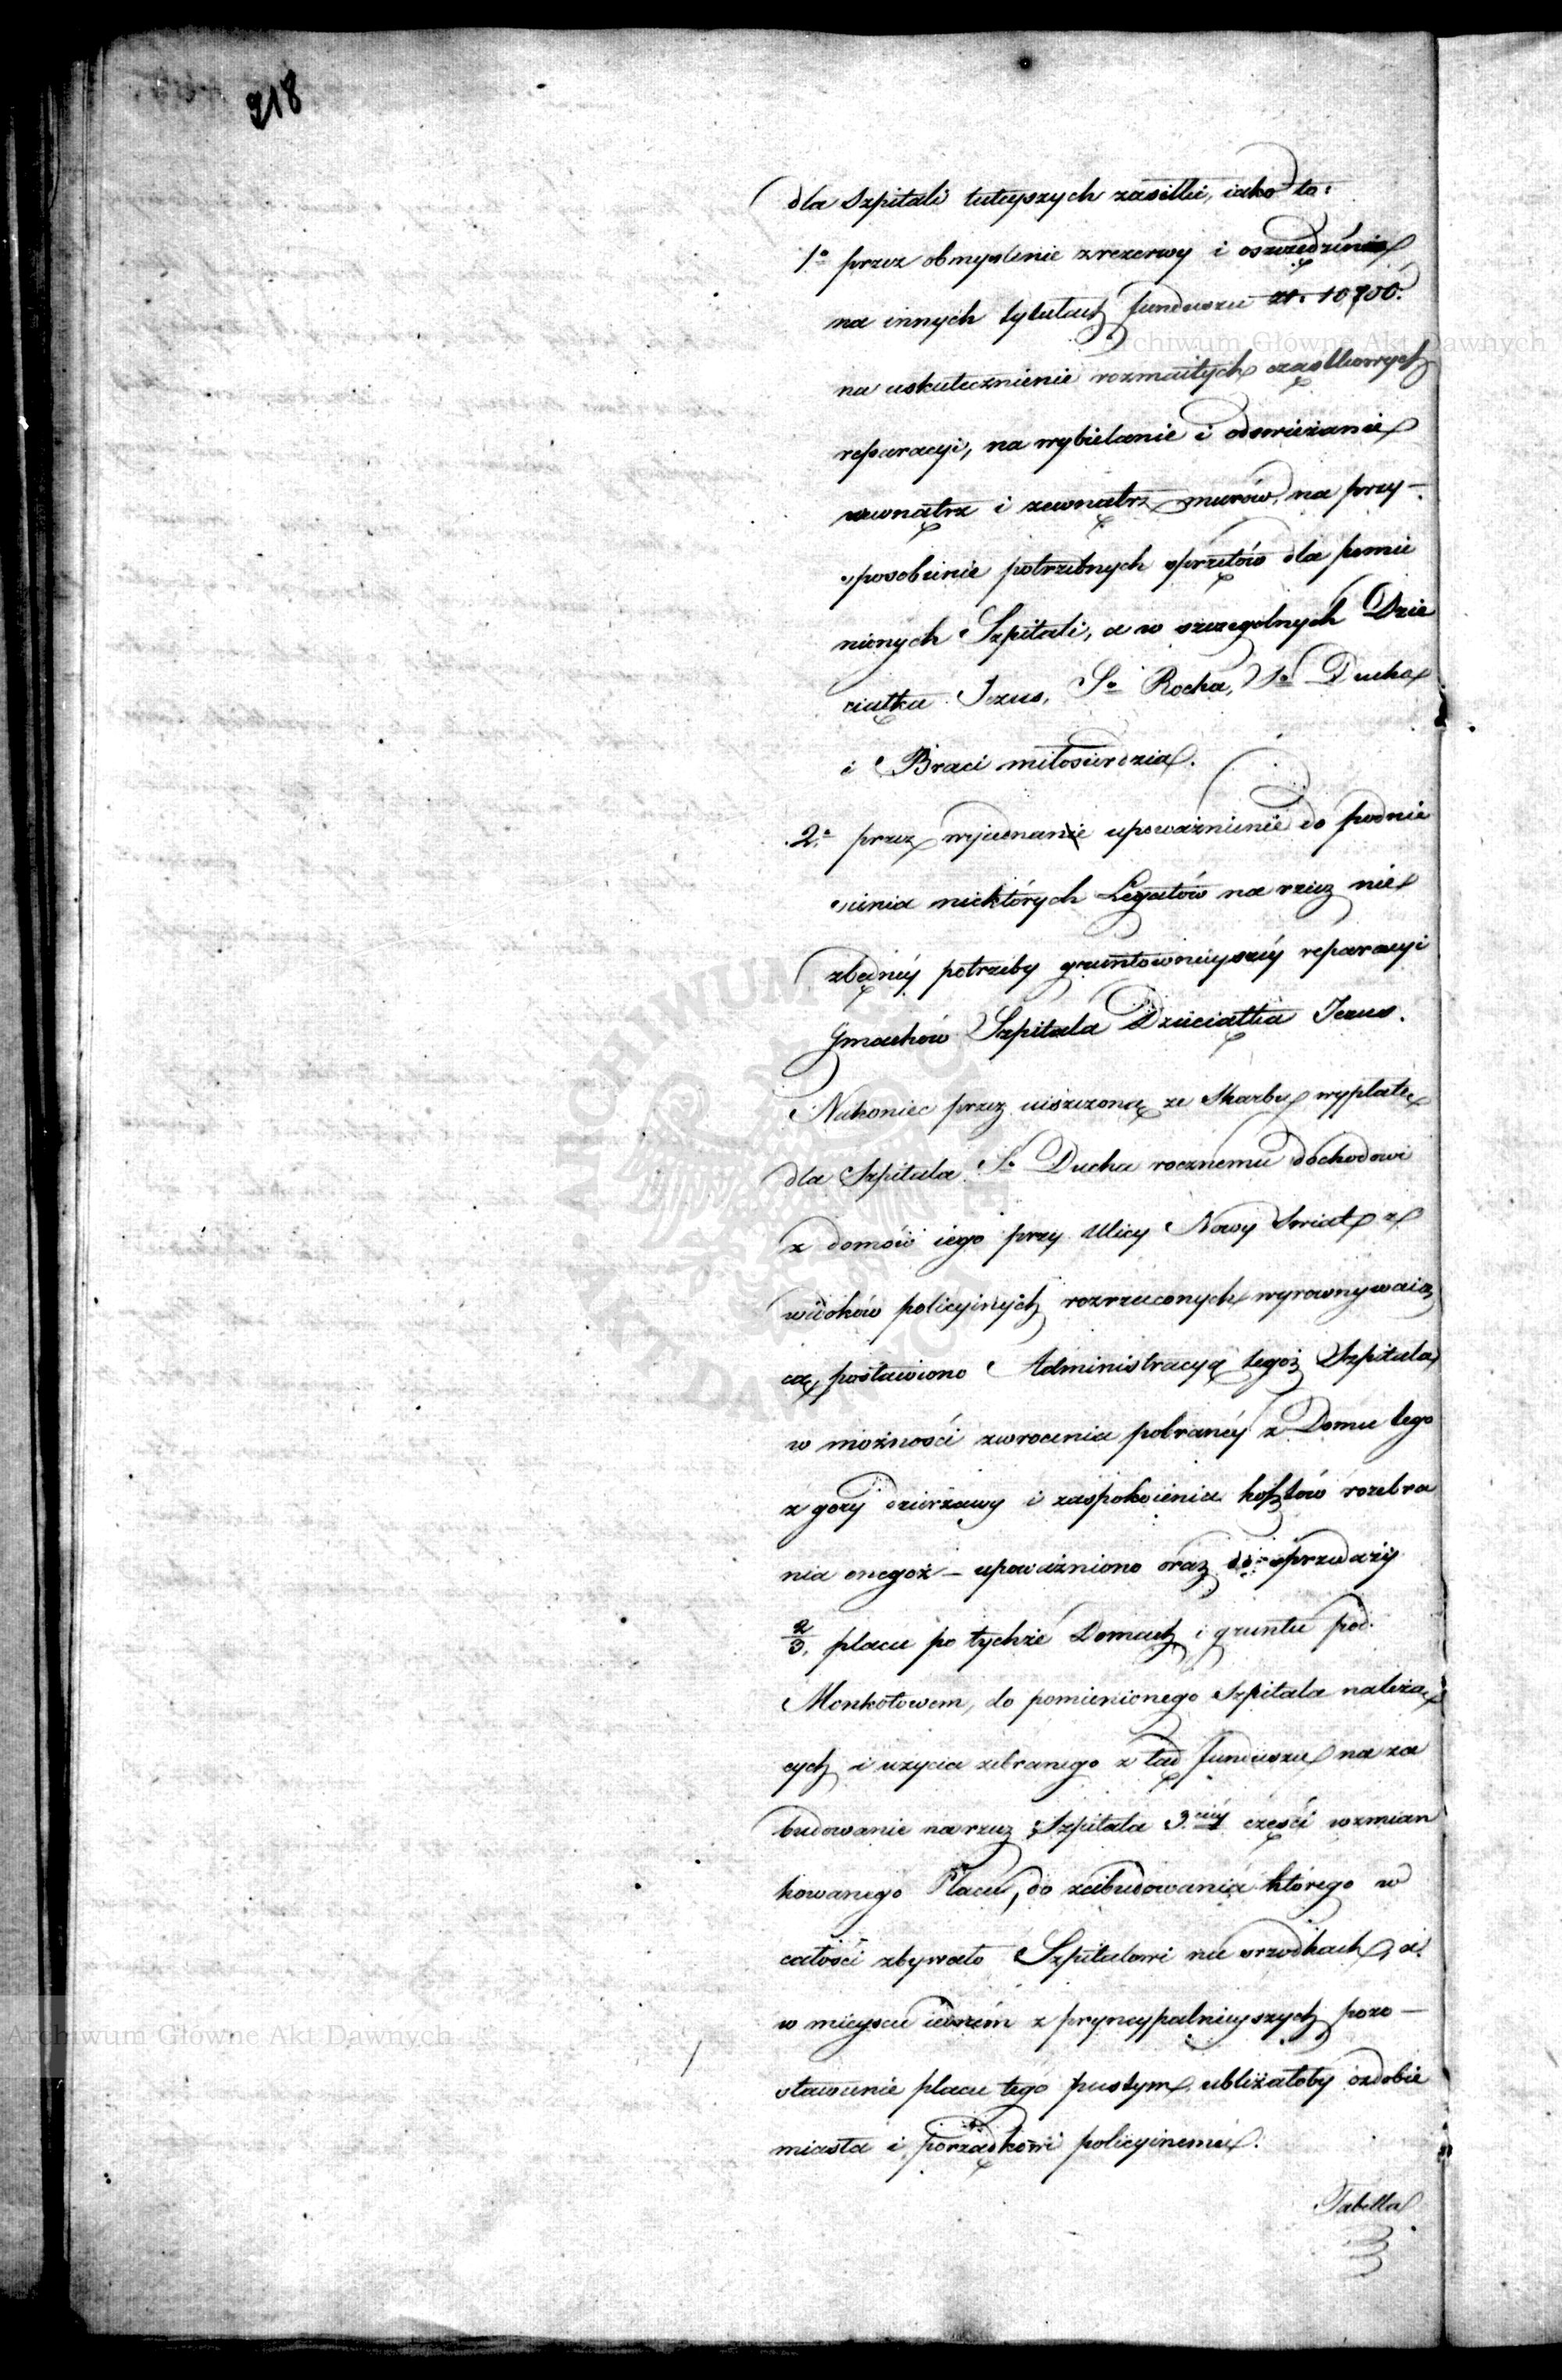 218
dla Szpitali tuteyszych zasiłki, iako to:
1º przez obmyslenie z rezerwy i oszczędzenia
na innych tytułach funduszu zł. 10,700.
na uskutecznienie rozmaitych cząstkowych
reparacyi, na wybielanie i odswieżanie
wewnątrz i zewnątrz murów, na przy-
sposobienie potrzebnych sprzętów dla pomie
nionych Szpitali, a w szczegolnych Dzie
ciątka Jezus, Sº Rocha, Sº Ducha
i Braci miłosierdzia.
2º przez wyiednanie upoważnienie do podnie
sienia niektórych Legatów na rzecz nie
zbędnéy potrzeby gruntownieyszéy reparacyi
Gmachów Szpitala Dzieciątka Jezus.
Nakoniec przez uiszczoną ze Skarbu wypłatę
dla Szpitala Sº Ducha rocznemu dochodowi
z domów iego przy Ulicy Nowy Swiat z
widoków policyinych rozrzuconych wyrownywaią
cą, postawiono Administracyą tegoż Szpitala
w możności zwrocenia pobranéy z Domu tego
z gory dzierżawy i zaspokoienia kosztów rozebra
nia onegoż – upoważniono oraz do sprzedaży
2/3. placu po tychże Domach i gruntu pod
Monkotowem, do pomienionego Szpitala należą
cych i uzycia zebranego z tąd funduszu na za
budowanie na rzecz Szpitala 3.ciéy części wzmian
kowanego Placu, do zabudowania którego w
całości zbywało Szpitalowi na srzodkach, a
w mieyscu iedném z pryncypalnieyszych pozo-
stawienie placu tego pustym, ubliżałoby ozdobie
miasta i porządkowi policyinemu.
Tabella
Archiwum Głowne Akt Dawnych
Archiwum Głowne Akt Dawnych
ARCHIWUM GŁÓWNE AKT DAWNYCH